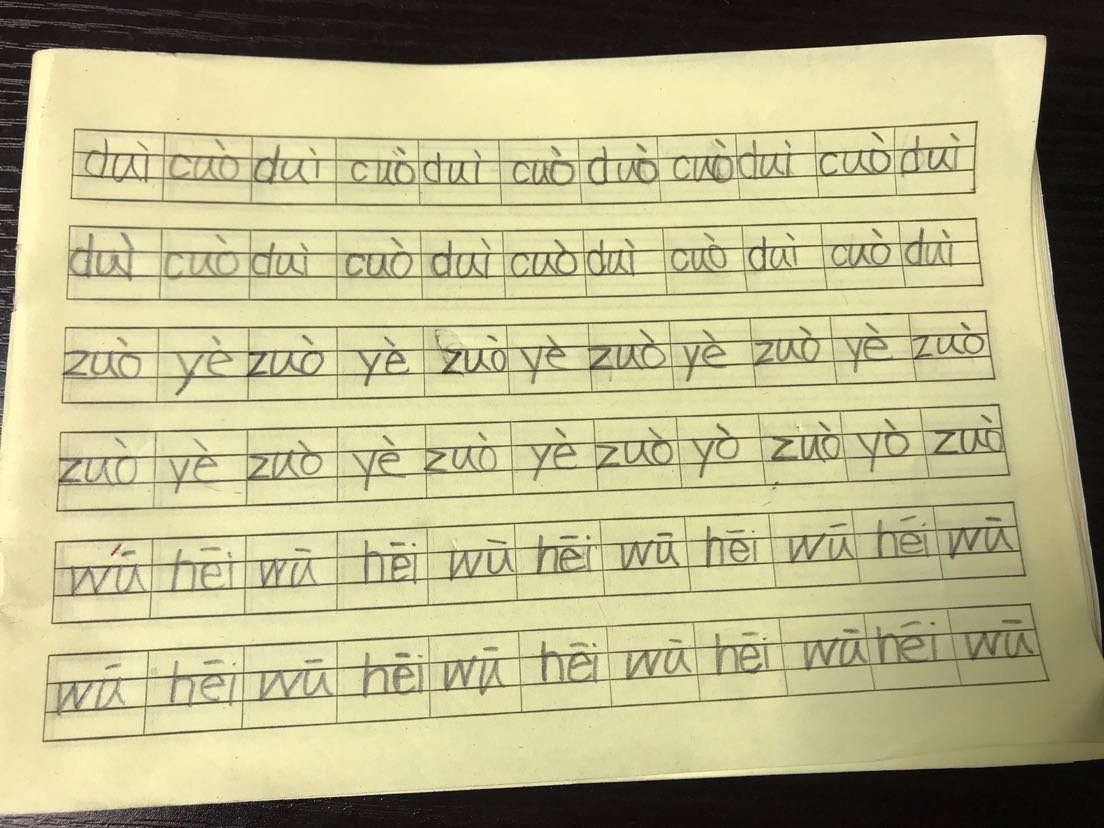 duì cuò duì cuò duì cuò duò cuò duì cuò duì
duì cuò duì cuò duì cuò duì cuò duì cuò duì
zuò yè zuò yè zuò yè zuò yè zuò yè zuò
zuò yè zuò yè zuò yè zuò yò zuò yò zuò
wū hēi wū hēi wū hēi wū hēi wū hēi wū
wū hēi wū hēi wū hēi wū hēi wū hēi wū